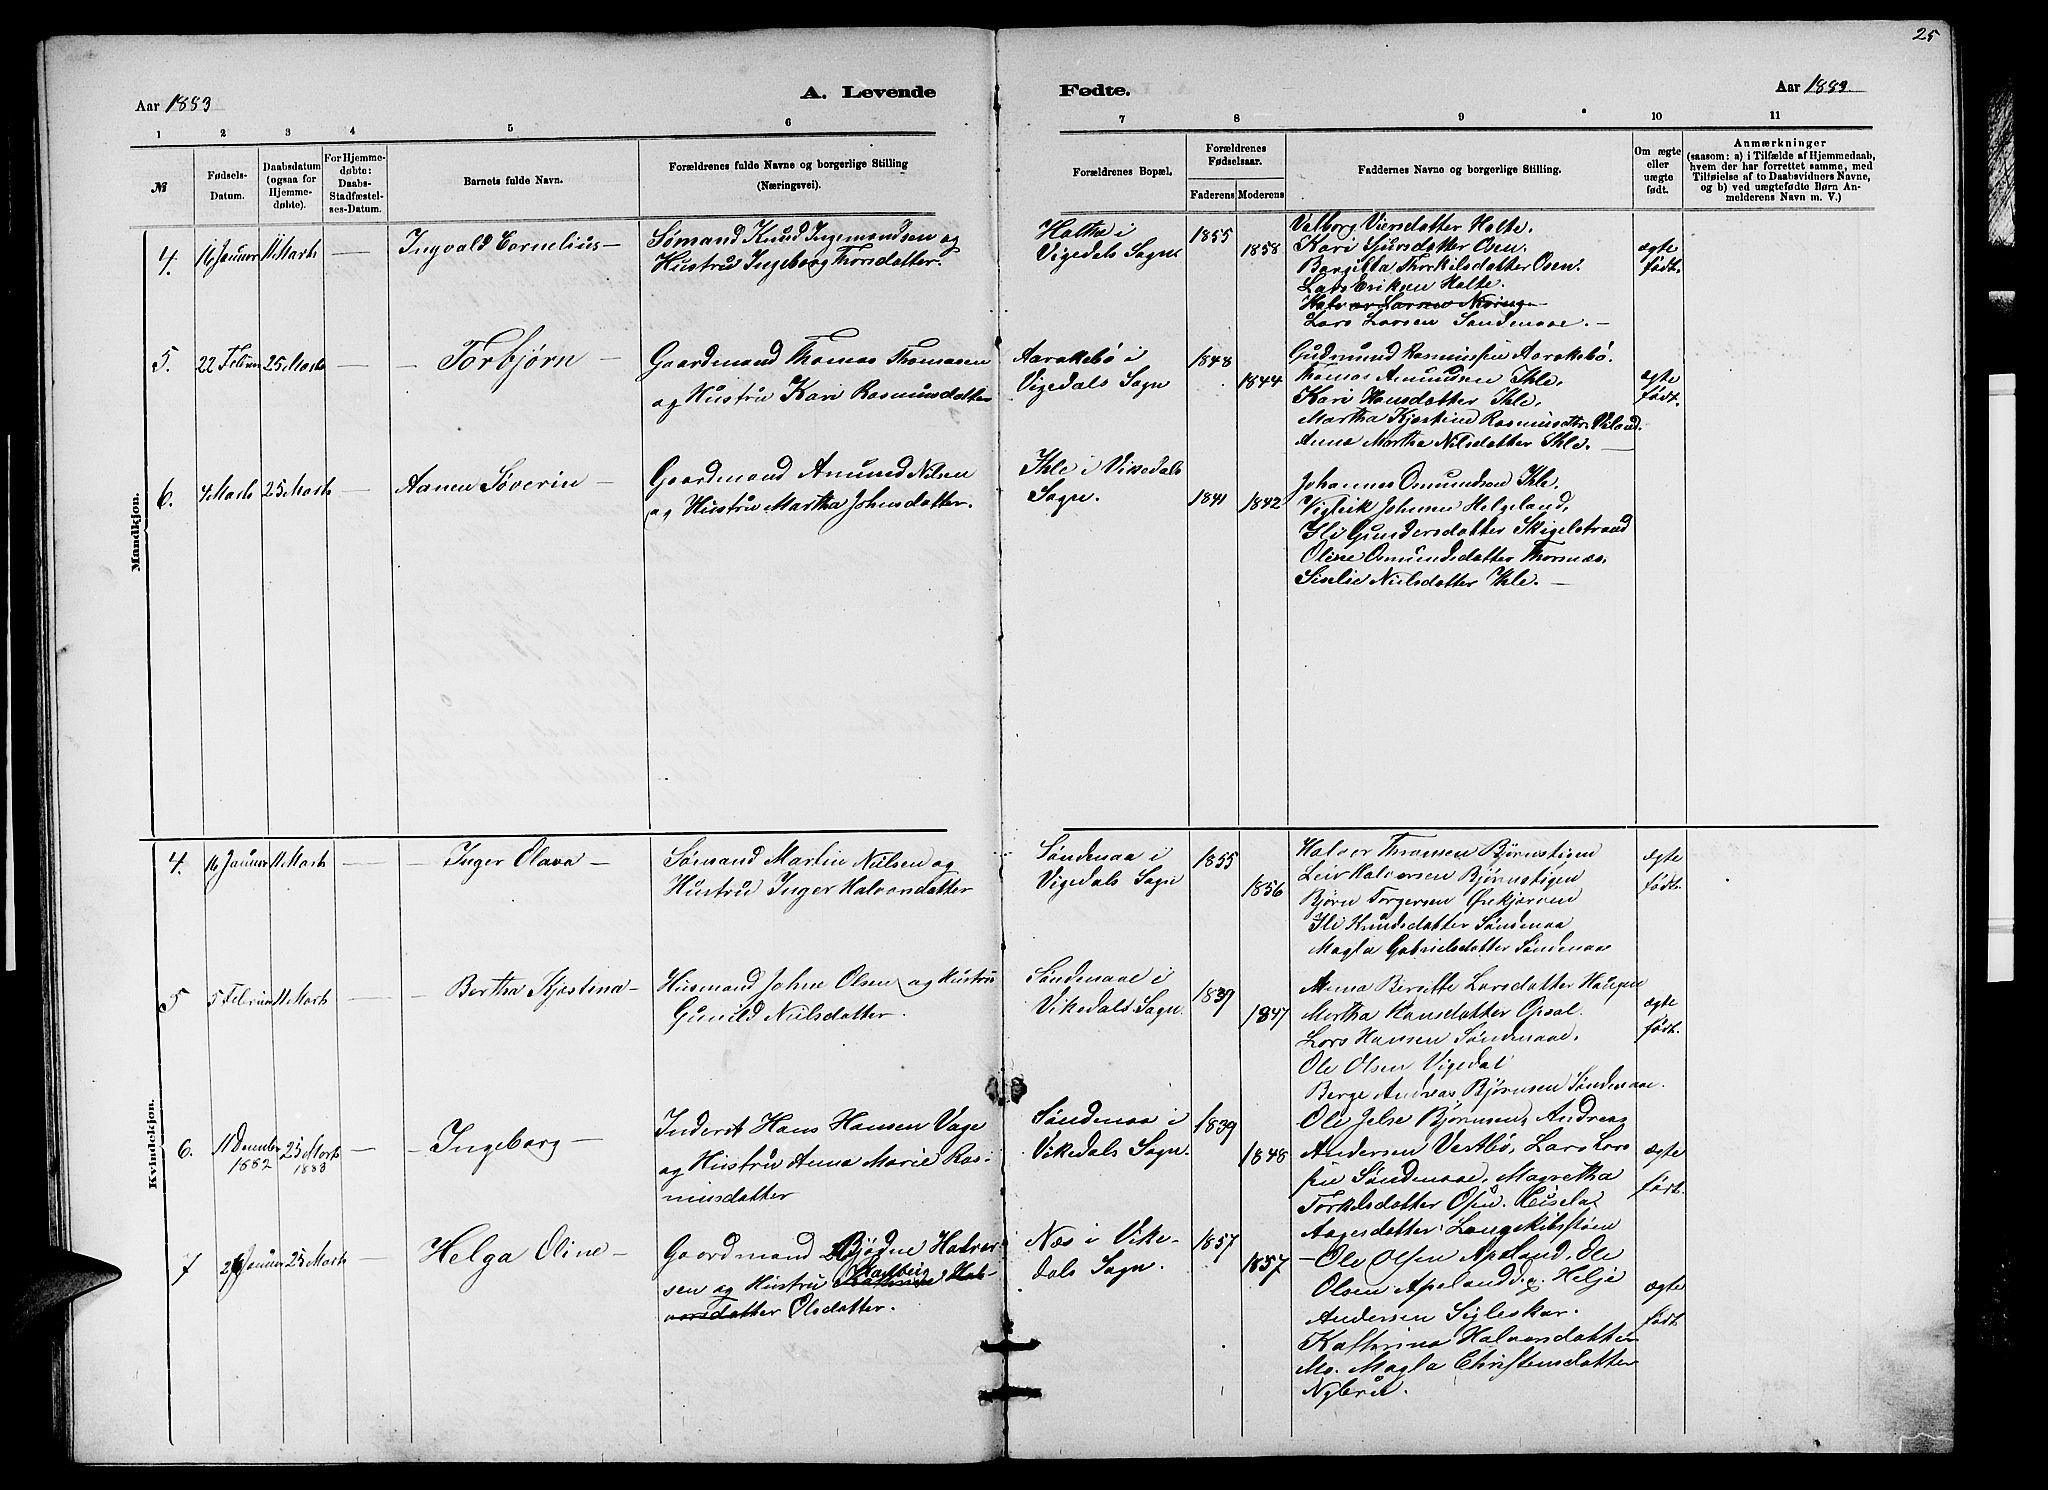 25
Aar 1883
A. Levende
Fødte.
Aar 1883.
1 2 3 4 5 6 7 8 9 10 11
№
Fødsels-
Datum.
Daabsdatum
(ogsaa for
Hjemme-
døbte).
For Hjemme-
døbte:
Daabs-
Stadfæstel-
ses-Datum.
Barnets fulde Navn.
Forældrenes fulde Navne og borgerlige Stilling
(Næringsvei).
Forældrenes Bopæl,
Forældrenes
Fødselsaar.
Faderens
Moderens
Faddernes Navne og borgerlige Stilling.
Om ægte
eller
uægte
født.
Anmærkninger
(saasom: a) i Tilfælde af Hjemmedaab,
hvem der har forrettet samme, med
Tilføielse af to Daabsvidners Navne,
og b) ved uægtefødte Børn An-
melderens Navn m. V.)
Mandkjøn.
4.
16 Januer
11 Marts
Ingvald Cornelius
Sømand Knud Ingemondsen og
Hustru Ingeborg Thorsdatter.
Holthe i
Vigedals Sogn
1855
1858
Valborg Viersdatter Holte.
Kari Sjursdatter Osen.
Bargitta Thorkilsdatter Osen.
Lars Eriksen Holte.
Lars Larsen Søndenaae.
ægte
født.
5.
22 Februar
25 Marts
Torbjørn
Gaardmand Thomas Thomasen
og Hustru Kari Rasmusdatter
Aarakebø i
Vigedals Sogn
1848
1844
Gudmund Rasmussen Aarakebø.
Thomas Amundsen Ihle,
Kari Hansdatter Ihle,
Martha Kjestine Rasmusdtr. Viland.
Anna Martha Nilsdatter Ihle.
ægte
født.
6.
4 Marts
25 Marts
Aamen Søverin
Gaardmand Amund Nilsen
og Hustru Martha Johnsdatter.
Ihle i Vikedals
Sogn.
1841
1842
Johannes Omundsen Ihle.
Vigleik Johnsen Helgeland,
Ili Gundersdatter Skigelstrand
Oline Omundsdatter Thornæs.
Siselie Nielsdatter Ihle.
Kvindekjøn.
4.
16 Januer
11 Marts
Inger Olava
Sømand Martin Nielsen og
Hustru Inger Halvorsdatter
Søndenaa i
Vigedals Sogn
1855
1856
Halvor Thomsen Bjørnstigen
Leiv Halvorsen Bjørnstigen
Bjørn Torgersen Ørekjørnen
Ili Knudsdatter Søndenaa
Magla Gabrielsdatter Søndenaae
ægte
født.
5
5 Februar
11 Marts
Bertha Kjestina
Husmand John Olsen og Hustru
Gunild Nielsdatter.
Søndenaae i
Vikedals Sogn.
1839
1847
Anna Beritte Larsdatter Haugen
Martha Hansdatter Opsal.
Lars Hansen Søndenaae.
Ole Olsen Vigedal
Berge Andreas Bjørnsen Søndenaae.
ægte
født.
6.
11 December
1882
25 Marts
1883
Ingeborg
Inderst Hans Hansen Vage
og Hustru Anna Marie Ras-
musdatter
Søndenaa i
Vikedals Sogn.
1839
1848
Ole Jelse Bjørnsen, Andreas
Andersen Vestbø, Lars Lars-
sen Søndenaae, Magretha
Torkelsdatter Osen. Ciselia
Aagesdatter Langeskibsstøen
ægte
født.
7
Januer
25 Marts
Helga Oline
Gaardmand Bjødne Halvor-
sen og Hustru Kathrine Hal-
vorsdatter Olsdatter.
Næs i Vike-
dals Sogn.
1857
1857
Ole Olsen Apeland, Ole
Olsen Apeland d.y. Helje
Andersen Sigleskar.
Kathrina Halvorsdatter
Magla Christensdatter
Nybru.
ægte
født